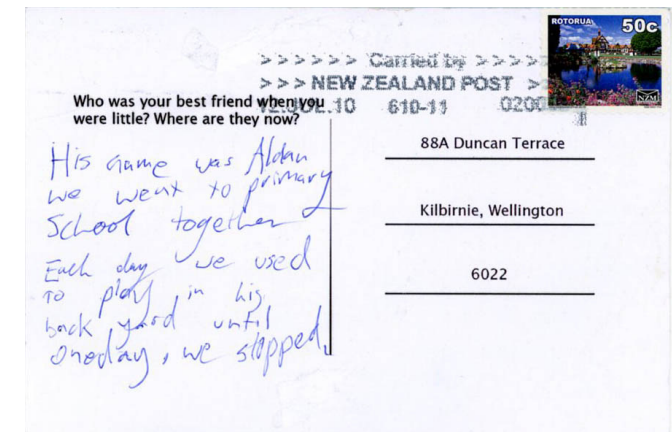 ROTORUA 50c
> > > > > > Carried by > > > >
> > > NEW ZEALAND POST >
12.JUL.10 610-11 0200
Who was your best friend when you
were little? Where are they now?
His name was Aldan
we went to primary
School together
Each day we used
to play in his
back yard until
oneday, we stopped.
88A Duncan Terrace
Kilbirnie, Wellington
6022